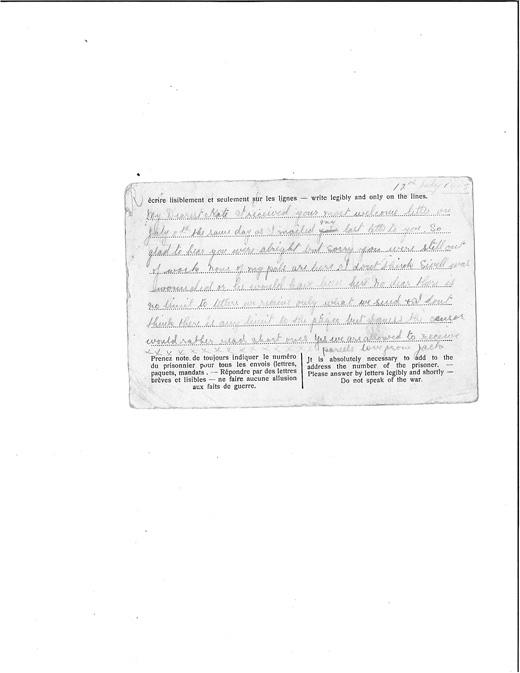 12th July 1915
écrire lisiblement et seulement sur les lignes — write legibly and only on the lines.
My Dearest Kate I received your most welcome letter on
July 9th the same day as I mailed my last letter to you So
glad to hear you were alright but sorry you were still out
of work None of my pals are here I dont think Sivell was
wounded or he would have been here No dear there is
no limit to letters we receive only what we send & I dont
think there is any limit to the pages but I guess the censor
would rather read short ones Yes we are allowed to receive
x x x x x x x x x x x parcels love from Jack
Prenez note de toujours indiquer le numéro
du prisonnier pour tous les envois (lettres,
paquets, mandats . — Répondre par des lettres
brèves et lisibles — ne faire aucune allusion
aux faits de guerre.
It is absolutely necessary to add to the
address the number of the prisoner. —
Please answer by letters legibly and shortly —
Do not speak of the war.